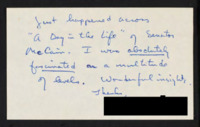 Just happened across
"A Day in the Life" of Senator
McCain. I was absolutely
fascinated on a multitude
of levels. Wonderful insight.
Thanks